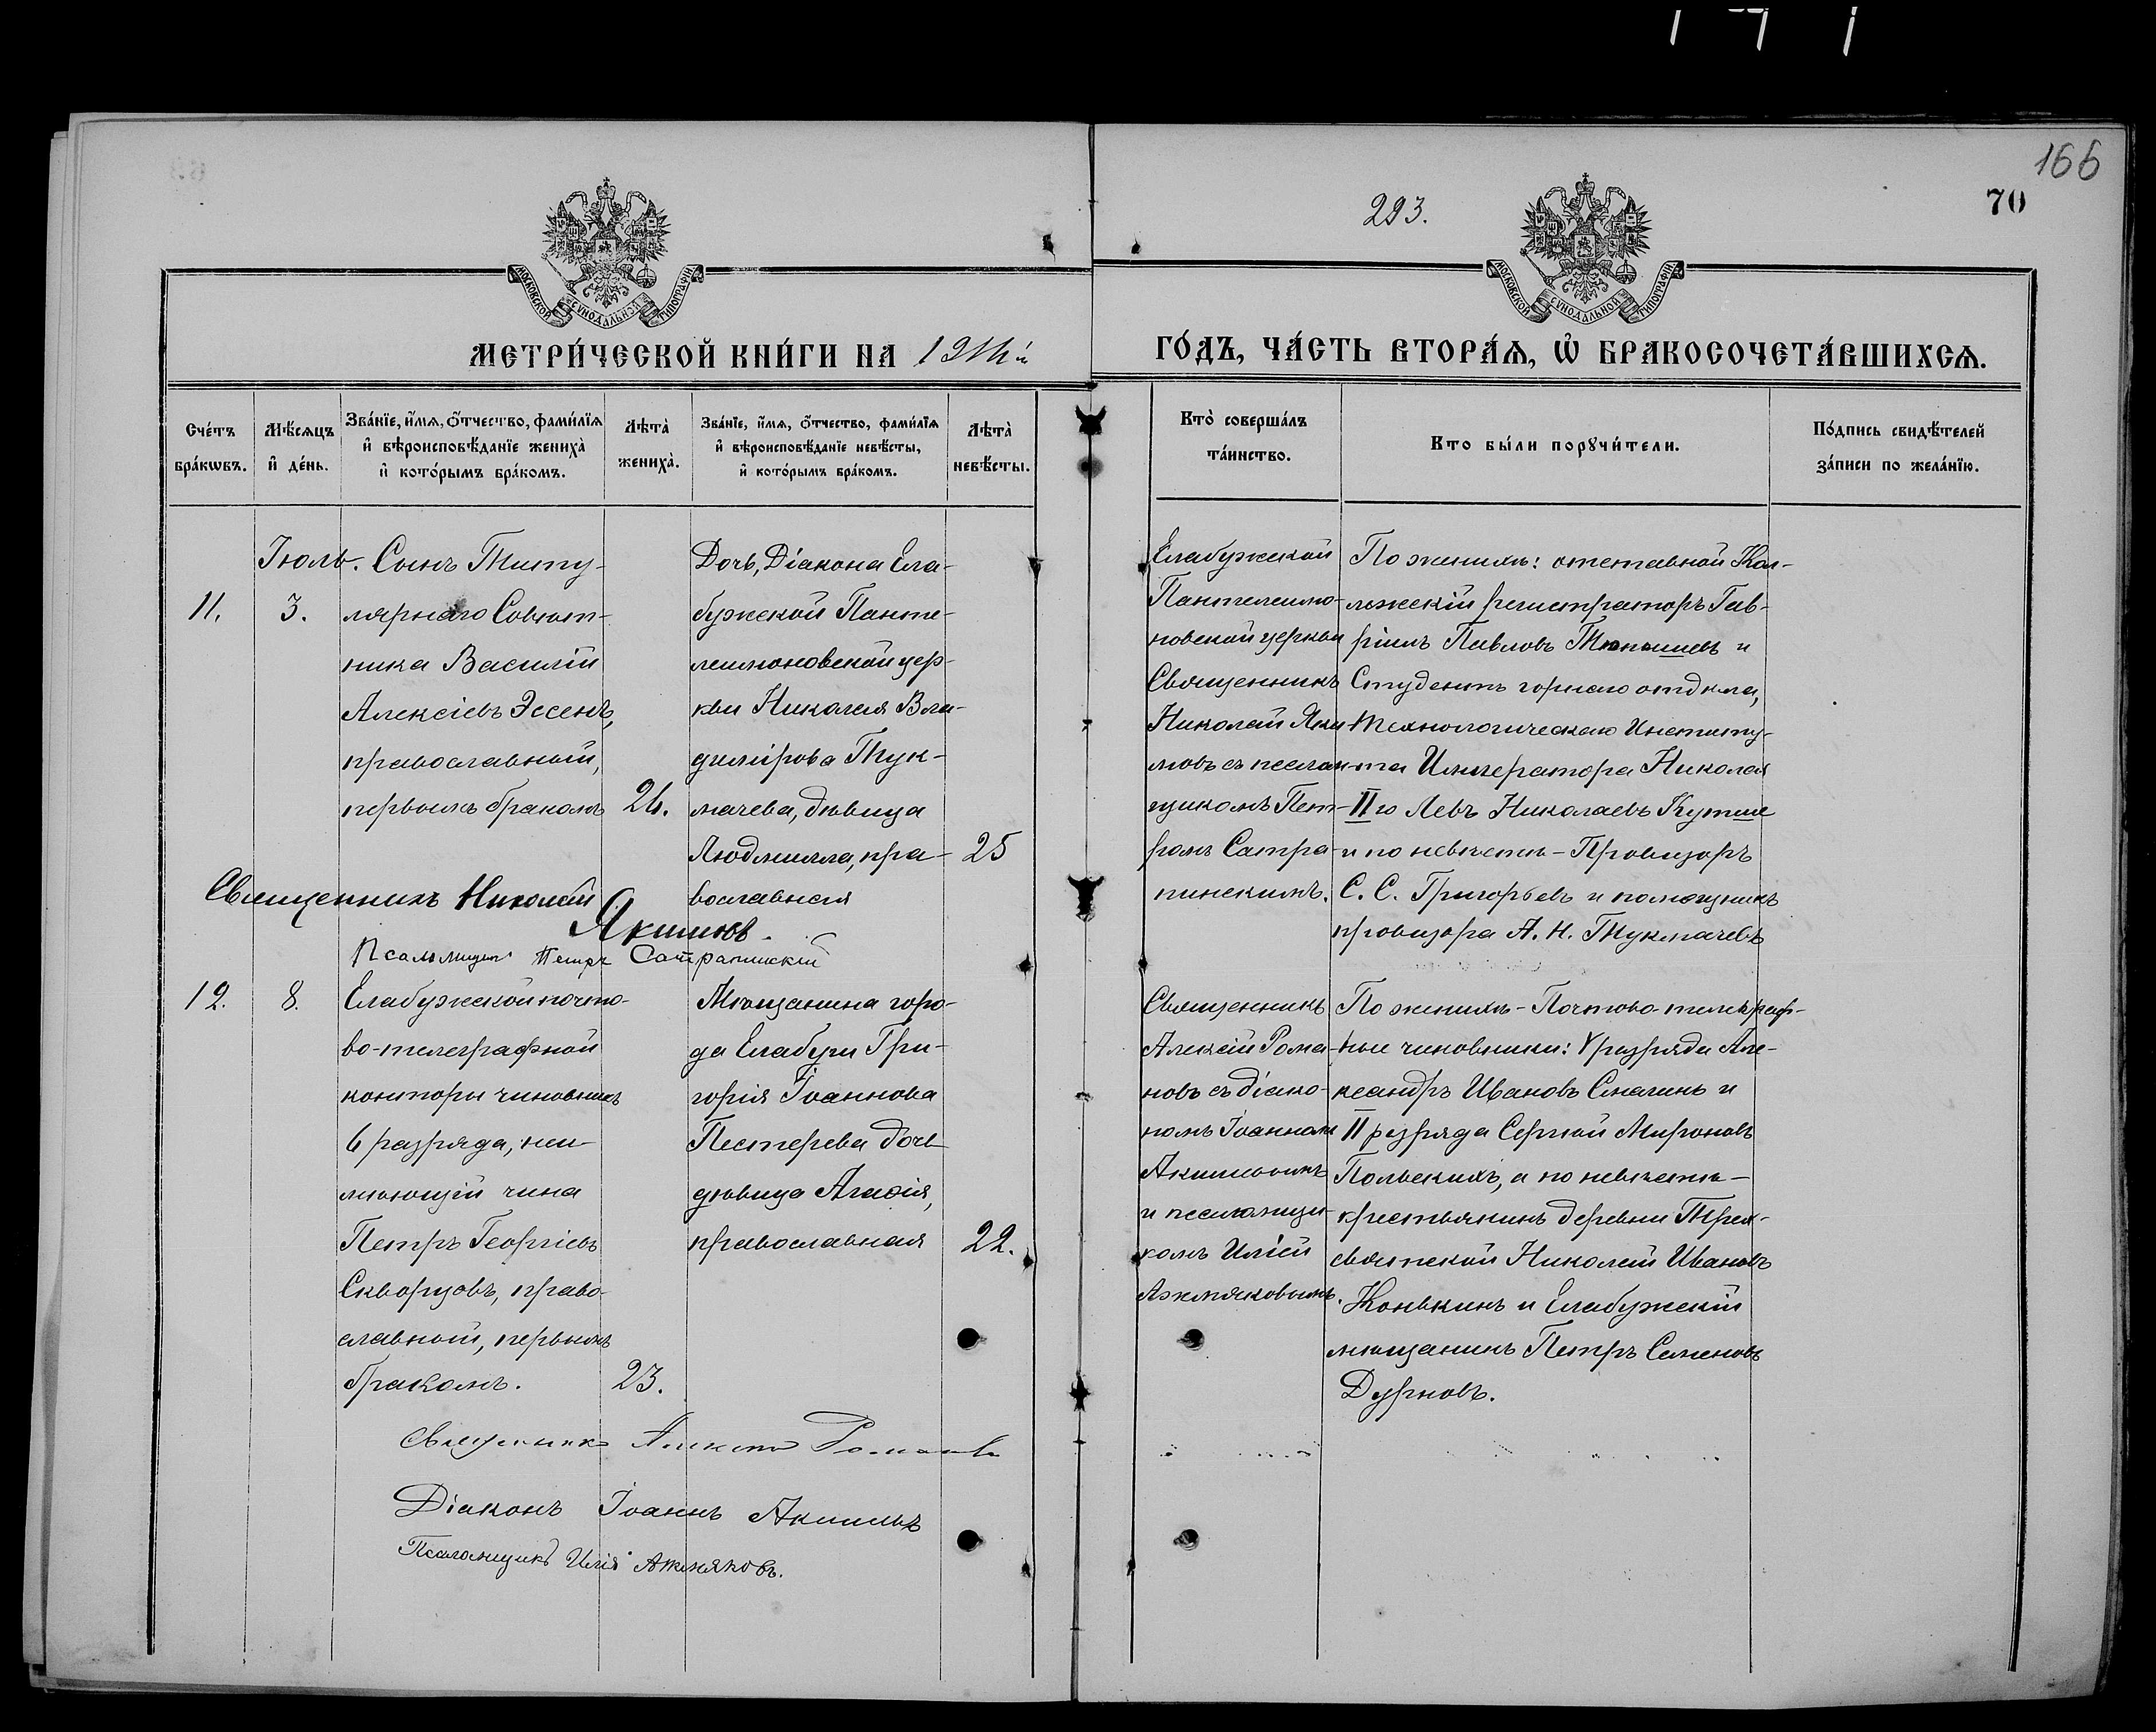 166
70
293.
МОСКОВСКОЙ СѴНОДАЛЬНОЙ ТИПОГРАФІИ
МОСКОВСКОЙ СѴНОДАЛЬНОЙ ТИПОГРАФІИ
МЕТРИ́ЧЕСКОЙ КНИ́ГИ НА
ГО́ДЪ, ЧА́СТЬ ВТОРА́Ѧ, Ѽ БРАКОСОЧЕТА́ВШИХСѦ.
Сче́тъ бра́кωвъ.
Мѣ́сѧцъ и҆ де́нь.
Зва́нїе, и҆́мѧ, ѻ҆́тчество, фами́лїѧ
и҆ вѣроисповѣ́данїе жениха̀
и҆ кото́рымъ бра́комъ.
Лѣта̀ жениха̀.
Зва́нїе, и҆́мѧ, ѻ҆́тчество, фами́лїѧ
и҆ вѣроисповѣ́данїе невѣ́сты,
и҆ кото́рымъ бра́комъ.
Лѣта̀ невѣ́сты.
Кто̀ соверша́лъ
та́инство.
Кто бы́ли порꙋчи́тели.
По́дпись свидѣ́телей
за́писи по жела́нїю.
11.
Іюль.
3.
Сынъ Титу-
лярнаго Совѣт-
ника Василій
Алексіевъ Эссенъ,
православный,
первымъ бракомъ
24.
Дочь Діакона Ела-
бужской Панте-
леимоновской цер-
кви Николая Вла-
димірова Тук-
мачева, дѣвица
Людмилла, пра-
вославная
25
Елабужской
Пантелеимо-
новской церкви
Священникъ
Николай Яки-
мовъ съ псалом-
щикомъ Пет-
ромъ Сатра-
пинскимъ.
По женихѣ: отставной Кол-
лежскій регистраторъ Гав-
ріилъ Павловъ и
Студентъ горнаго отдѣла,
Технологическаго Институ-
та Императора Николая
II го Левъ Николаевъ Кутше
и по невѣстѣ - Провизоръ
С. С. Григорьевъ и помощникъ
провизора А. Н. Тукмачевъ
Священникъ Николай
Якимовъ.
Псаломщикъ Петръ Сатрапинскій
12.
8.
Елабужской почто-
во-телеграфной
конторы чиновникъ
6 разряда, неи-
мѣющій чина
Петръ Георгіевъ
Скворцовъ, право-
славный, первымъ
бракомъ.
23.
Мѣщанина горо-
да Елабуги Гри-
горія Іоаннова
Пестерева дочь
дѣвица Агаѳія,
православная
22.
Священникъ
Алексій Рома-
новъ съ діако-
номъ Іоанномъ
Акимовымъ
и псаломщи-
комъ Иліей
Ажмяковымъ.
По женихѣ - Почтово-телеграф-
ные чиновники: V разряда Але-
ксандръ Ивановъ Смагинъ и
II разряда Сергѣй Мироновъ
Польскихъ, а по невѣстѣ -
крестьянинъ деревни Трех-
святской Николай Ивановъ
Конькинъ и Елабужскій
мѣщанинъ Петръ Семеновъ
Дурновъ.
Священникъ Алексій Романовъ
Діаконъ Іоаннъ Акимовъ
Псаломщикъ Илія Ажмяковъ.